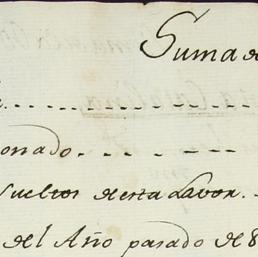 Suma de
onado
Sueltos de esta Labor.
del Año pasado de 8